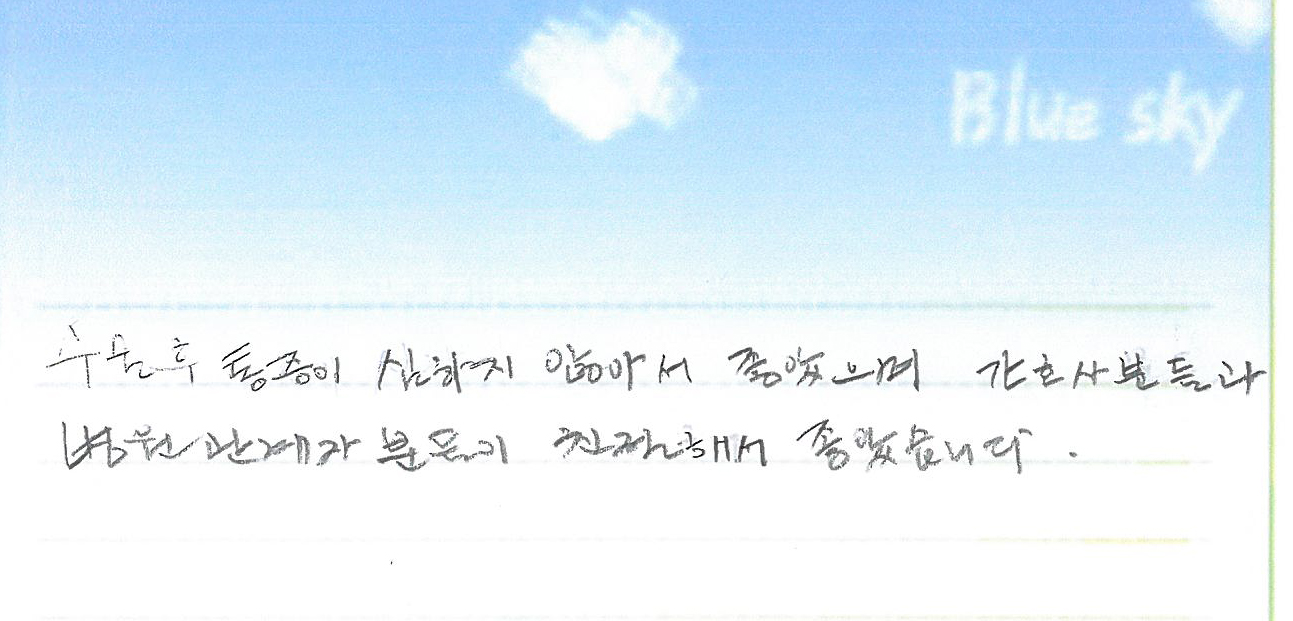 Blue sky
수술후 통증이 심하지 않아서 좋았으며 간호사분들과
병원관계자 분들이 친절해서 좋았습니다.